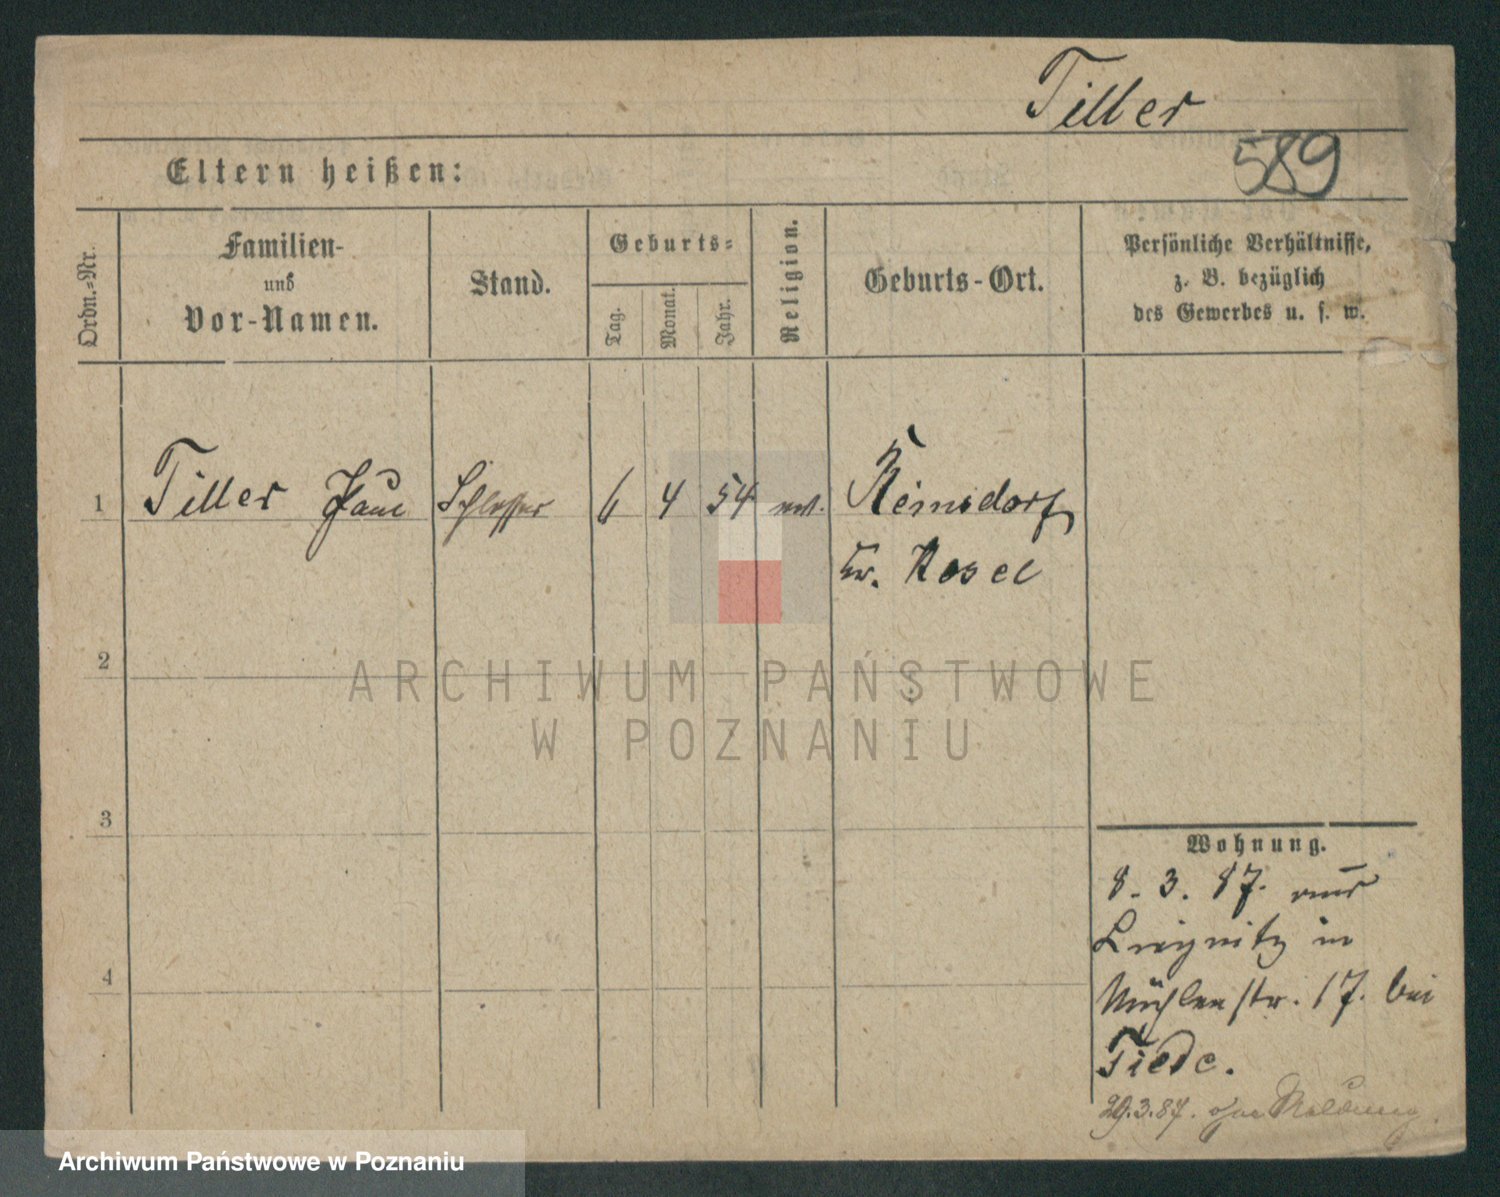 Tiller
589
Eltern heißen:
Ordn.-Nr.
Familien-
und
Vor-Namen.
Stand.
Geburts-
Tag.
Monat.
Jahr.
Religion.
Geburts-Ort.
Persönliche Verhältnisse,
z. B. bezüglich
des Gewerbes u. s. w.
1 Tiller Paul Schlosser 6 4 54 Reinsdorf
Kr. Kosel
2
3
4
Wohnung.
8. 3. 87. aus
Liegnitz in
Mühlenstr. 17. bei
Tiede.
29.3.87. ohne Meldung.
ARCHIWUM PAŃSTWOWE
W POZNANIU
Archiwum Państwowe w Poznaniu